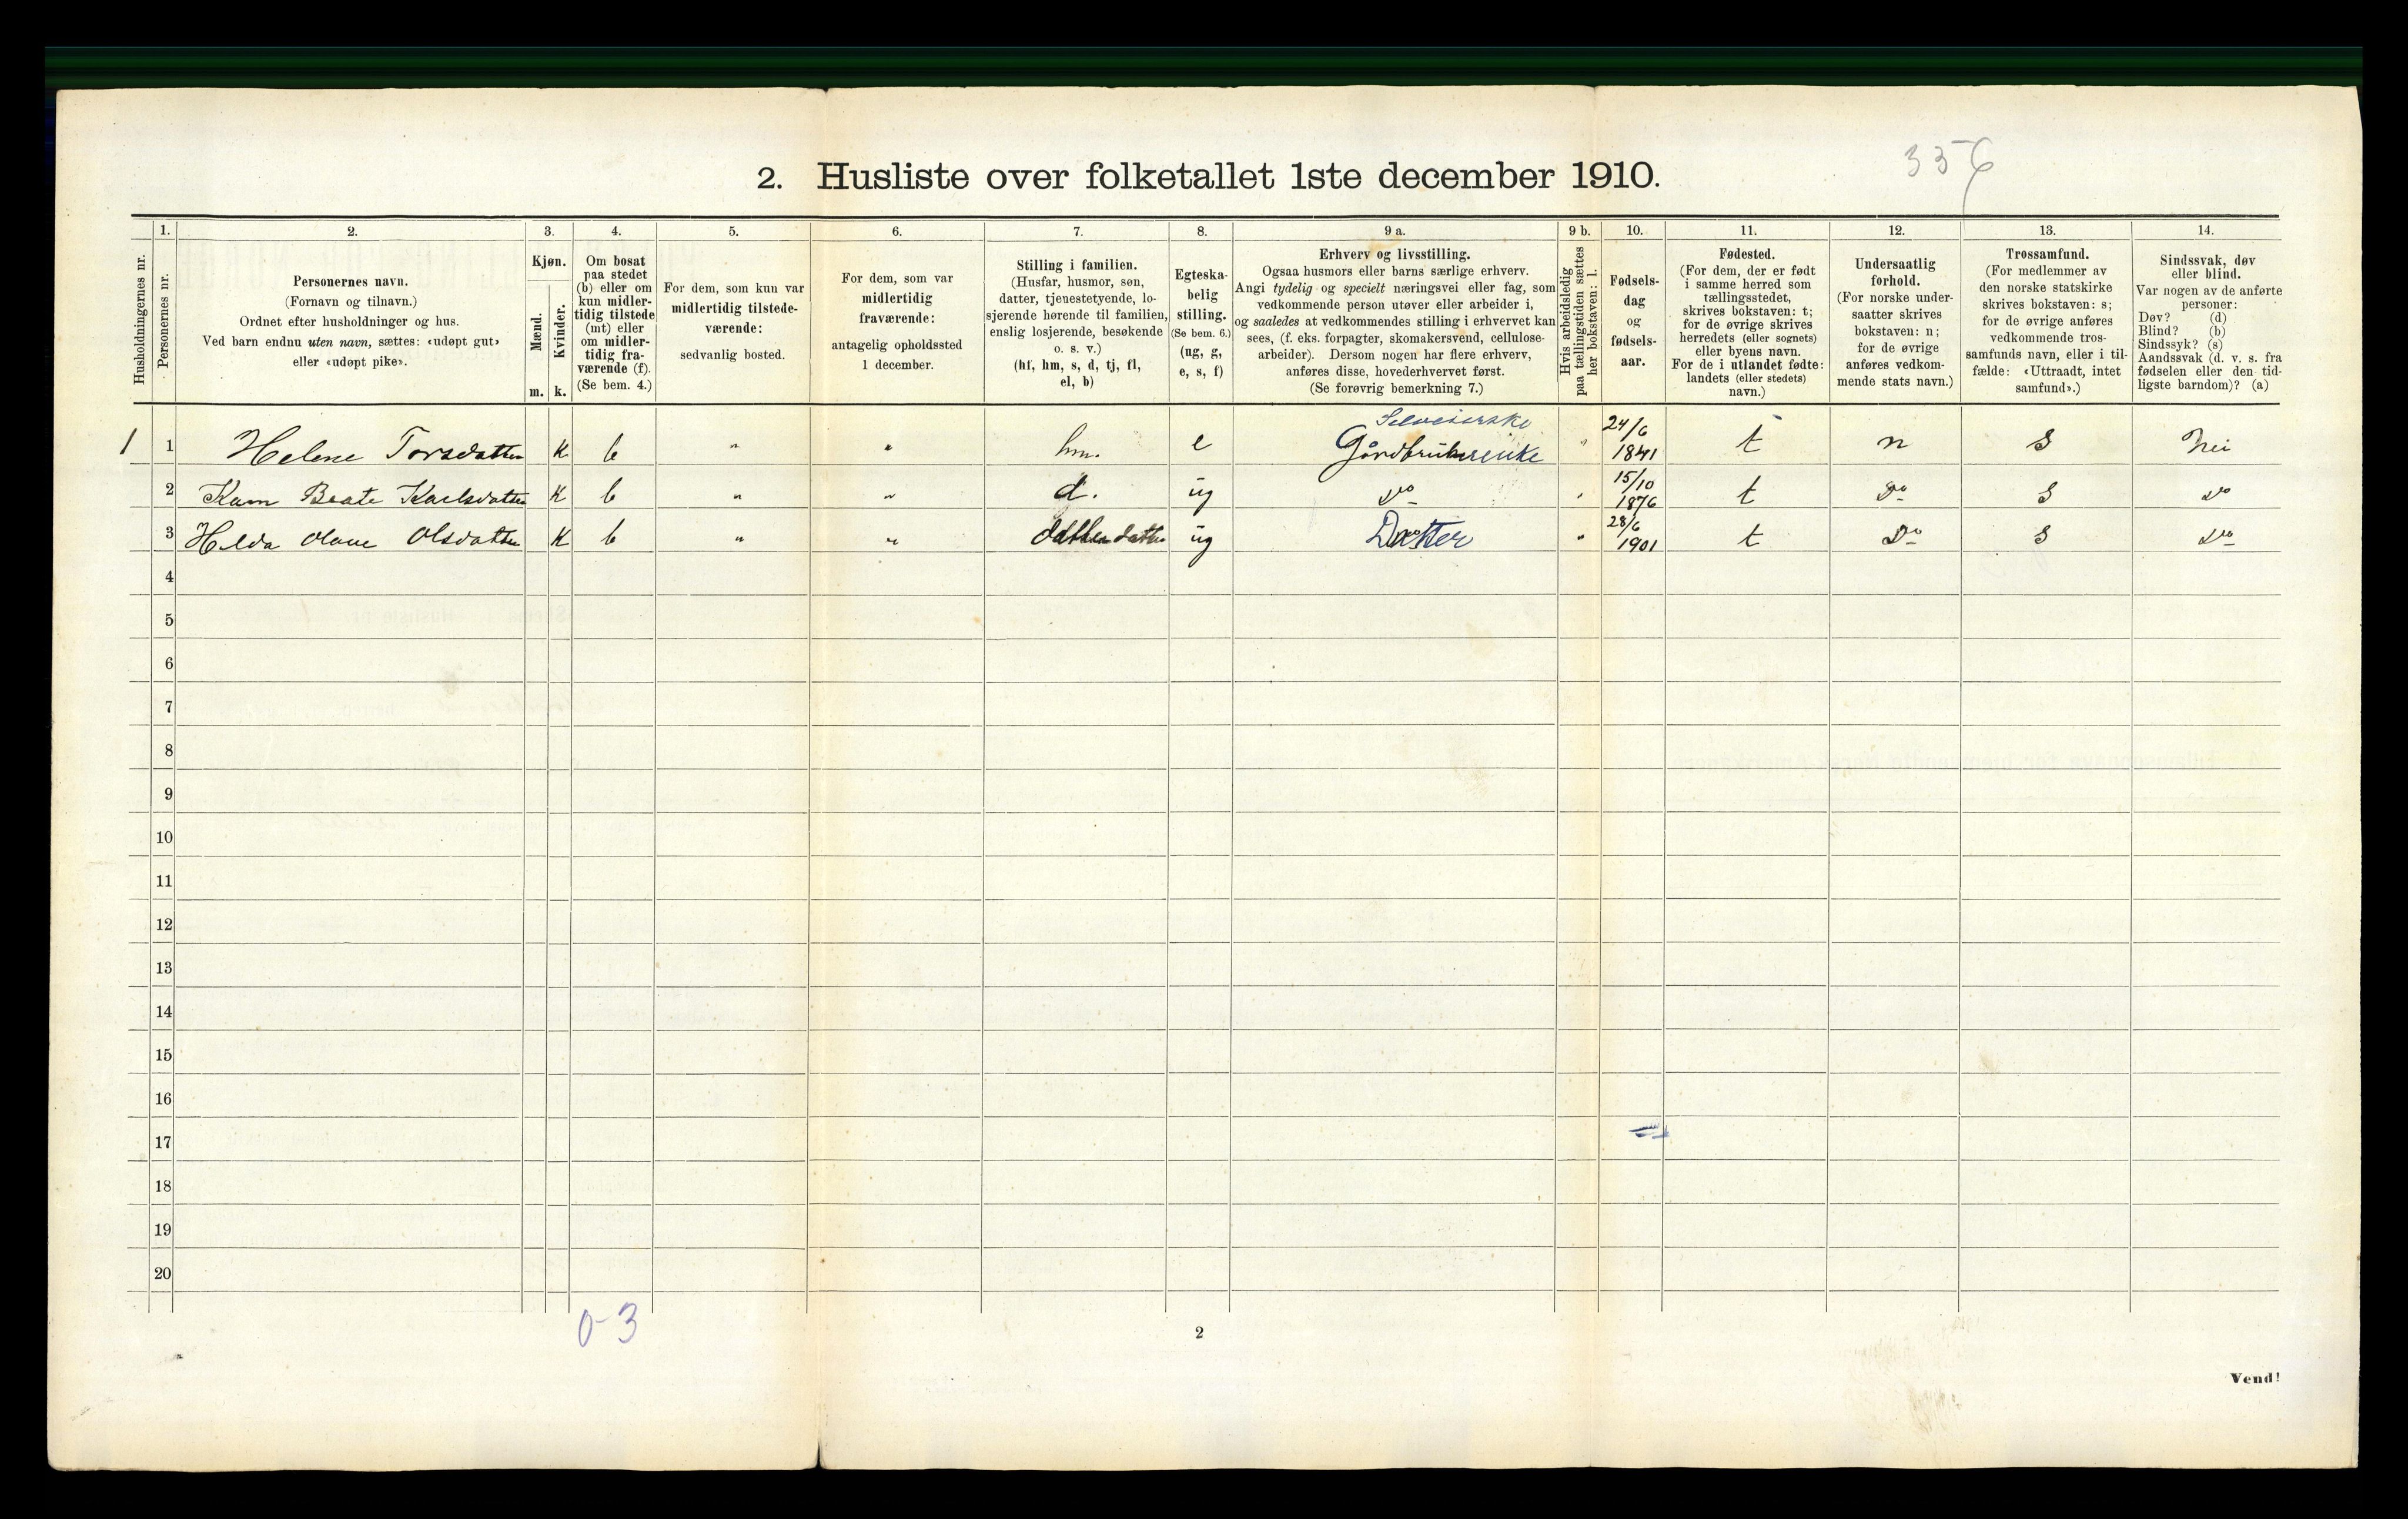 356
2. Husliste over folketallet 1ste december 1910.
Husholdningernes nr.
1.
Personernes nr.
2.
Personernes navn.
(Fornavn og tilnavn.)
Ordnet efter husholdninger og hus.
Ved barn endnu uten navn, sættes: «udøpt gut»
eller «udøpt pike».
3.
Kjøn.
Mænd.
Kvinder.
m. k.
4.
Om bosat
paa stedet
(b) eller om
kun midler-
tidig tilstede
(mt) eller
om midler-
tidig fra-
værende (f).
(Se bem. 4.)
5.
For dem, som kun var
midlertidig tilstede-
værende:
sedvanlig bosted.
6.
For dem, som var
midlertidig
fraværende:
antagelig opholdssted
1 december.
7.
Stilling i familien.
(Husfar, husmor, søn,
datter, tjenestetyende, lo-
sjerende hørende til familien,
enslig losjerende, besøkende
o. s. v.)
(hf, hm, s, d, tj, fl,
el, b)
8.
Egteska-
belig
stilling.
(Se bem. 6.)
(ug, g,
e, s, f)
9 a.
Erhverv og livsstilling.
Ogsaa husmors eller barns særlige erhverv.
Angi tydelig og specielt næringsvei eller fag, som
vedkommende person utøver eller arbeider i,
og saaledes at vedkommendes stilling i erhvervet kan
sees, (f. eks. forpagter, skomakersvend, cellulose-
arbeider). Dersom nogen har flere erhverv,
anføres disse, hovederhvervet først.
(Se forøvrig bemerkning 7.)
9 b.
Hvis arbeidsledig
paa tællingstiden sættes
her bokstaven: l.
10.
Fødsels-
dag
og
fødsels-
aar.
11.
Fødested.
(For dem, der er født
i samme herred som
tællingsstedet,
skrives bokstaven: t;
for de øvrige skrives
herredets (eller sognets)
eller byens navn.
For de i utlandet fødte:
landets (eller stedets)
navn.)
12.
Undersaatlig
forhold.
(For norske under-
saatter skrives
bokstaven: n;
for de øvrige
anføres vedkom-
mende stats navn.)
13.
Trossamfund.
(For medlemmer av
den norske statskirke
skrives bokstaven: s;
for de øvrige anføres
vedkommende tros-
samfunds navn, eller i til-
fælde: «Uttraadt, intet
samfund».)
14.
Sindssvak, døv
eller blind.
Var nogen av de anførte
personer:
Døv? (d)
Blind? (b)
Sindssyk? (s)
Aandssvak (d. v. s. fra
fødselen eller den tid-
ligste barndom)? (a)
Selveierske
1 1 Helene Torsdatter K b " " hm. e 24/6 1841 t n S Nei
2 Beate Karlsdatter K b " " d. ug do 15/10 1876 t Do S do
3 Helda Olave Olsdatter K b " " datter datter ug Datter " 28/6 1901 t Do S do
4
5
6
7
8
9
10
11
12
13
14
15
16
17
18
19
20
0-3
2
Vend!